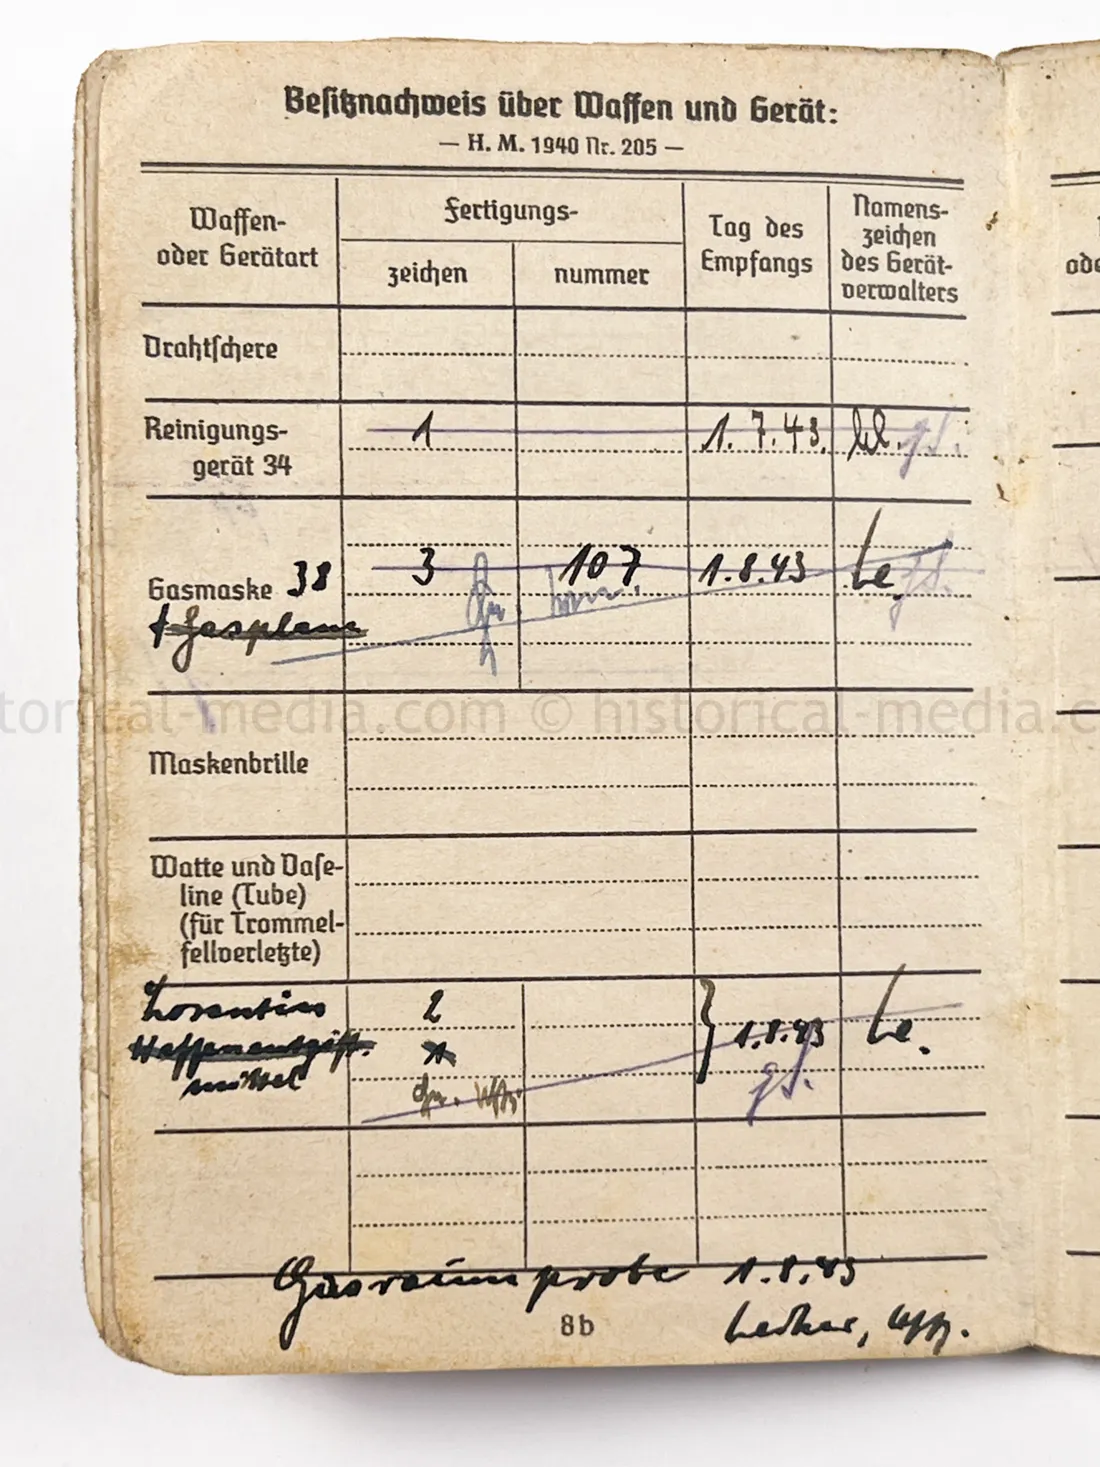 Besitznachweis über Waffen und Gerät:
— H. M. 1940 Nr. 205 —
Waffen-
oder Gerätart
Fertigungs-
zeichen
nummer
Tag des
Empfangs
Namens-
zeichen
des Gerät-
verwalters
Drahtschere
Reinigungs-
gerät 34
1
1.7.43.
Gasmaske 38
3
107
1.8.43
Le.
+ Gasplane
Maskenbrille
Watte und Vase-
line (Tube)
(für Trommel-
fellverletzte)
Losantin
2
Waffenentgift.
mittel
1
1.8.43
Le.
Gasraumprobe 1.8.43
8b
Uffz.
ode
historical-media.com © historical-media.c